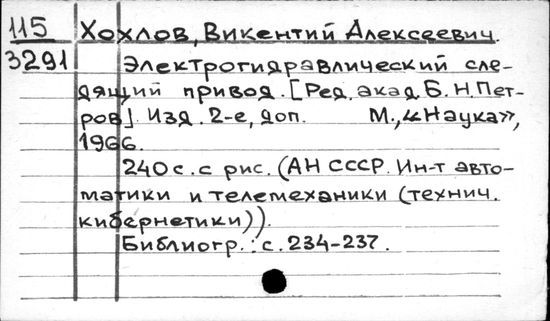 115 Хохлов, Викентий Алексеевич.
3291 Электрогидравлический сле-
дящий привод. [Ред. акад. Б. Н. Пет-
ров]. Изд. 2-е, доп. М., «Наука»,
1966.
240 с. с рис. (АН СССР. Ин-т авто-
матики и телемеханики (технич.
кибернетики)).
Библиогр.: с. 234-237.